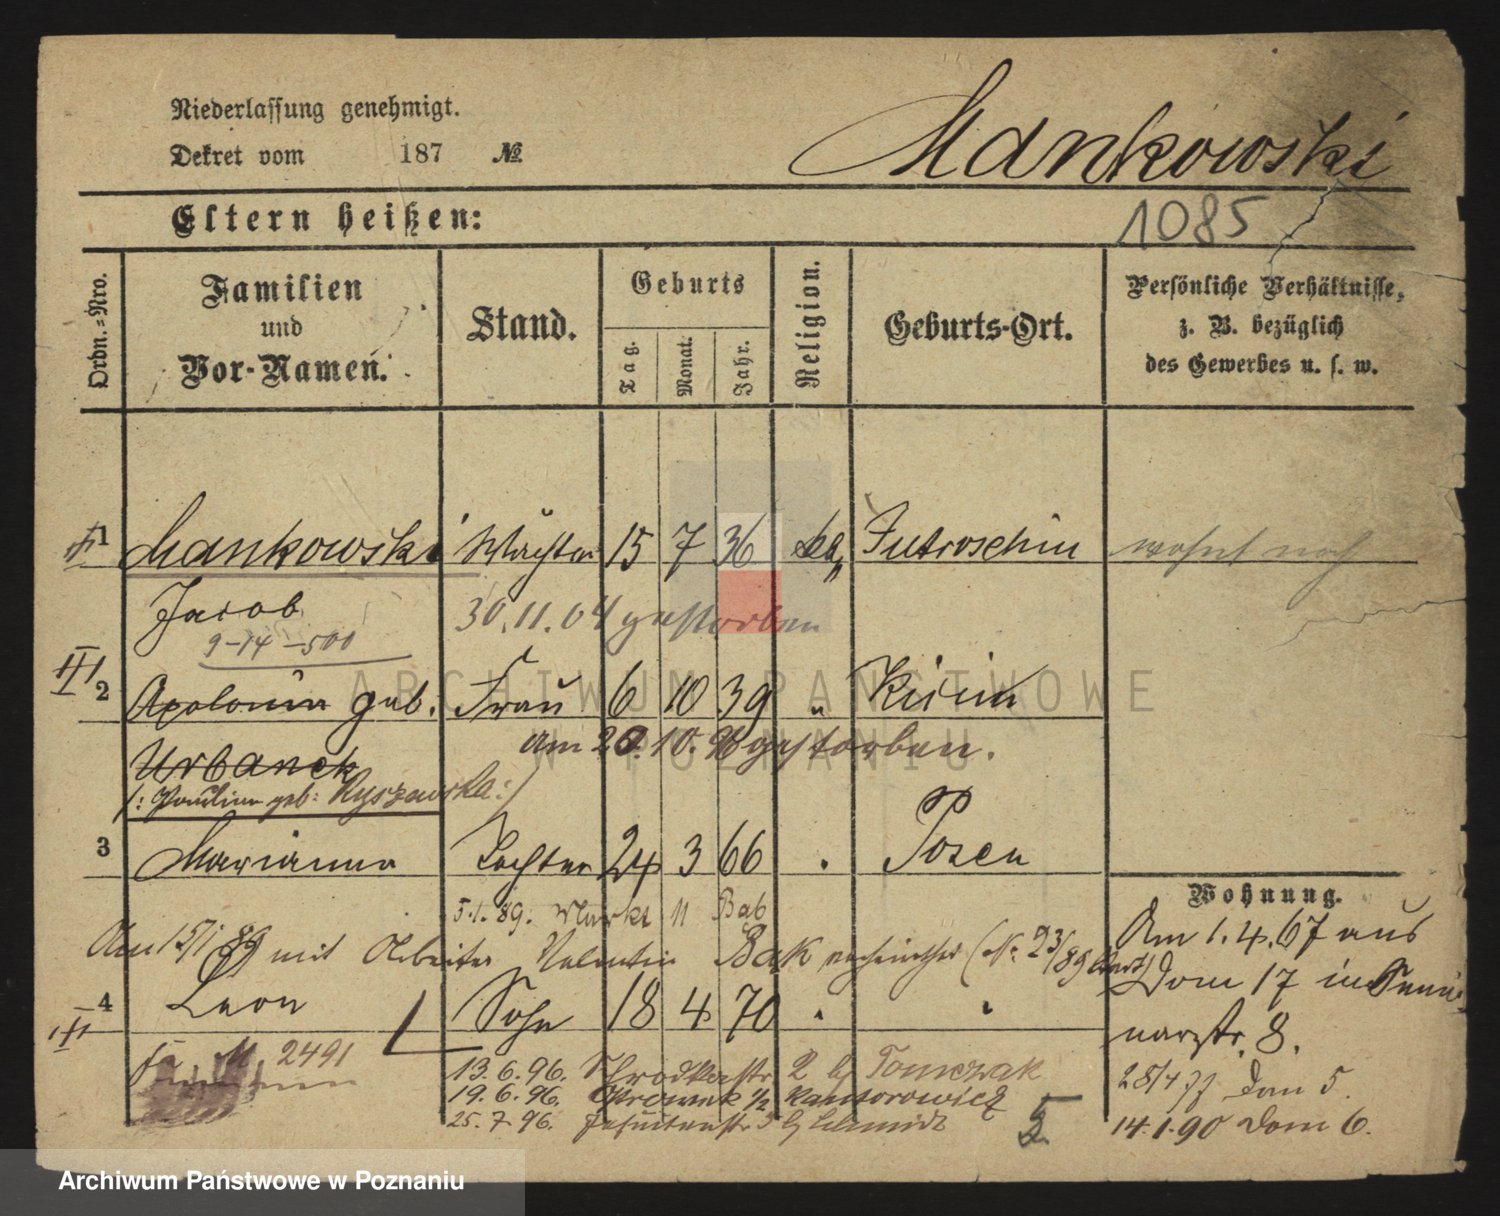 Niederlassung genehmigt.
Mankowski
Dekret vom 187 №
Eltern heißen:
1085
Ordn.=Nro.
Familien und Vor-Namen.
Stand.
Geburts
Tag. Monat. Jahr.
Religion.
Geburts-Ort.
Persönliche Verhältnisse, z. B. bezüglich des Gewerbes u. s. w.
1 Mankowski Wächter 15 7 36 ka, Jutroschin wohnt noch
Jacob 30.11.04 gestorben
9-14-500
2 Apolonia geb. Frau 6 10 39 " Kirim
Urbanek am 20.10.98 gestorben.
/: Paulina geb: Ryszewska :/
3 Marianna Tochter 24 3 66 " Posen
Wohnung.
5.1.89. Markt 11 Bab
Am 1.4.67 aus
Am 15/1 89 mit Arbeiter Valentin Bak (Nr. 23/89
Dom 17 in Semi
4 Leon Sohn 18 4 70 " "
narstr. 8.
2491
13.6.96. Schrodkastr 2 b Tomczak
28/4 77 Dom 5.
19.6.96. Ostrowek 1/2 Kantorowicz
25.7.96. Jesuitenstr 5 b Schmidt
14.1.90 Dom 6.
5
ARCHIWUM PAŃSTWOWE
W POZNANIU
Archiwum Państwowe w Poznaniu